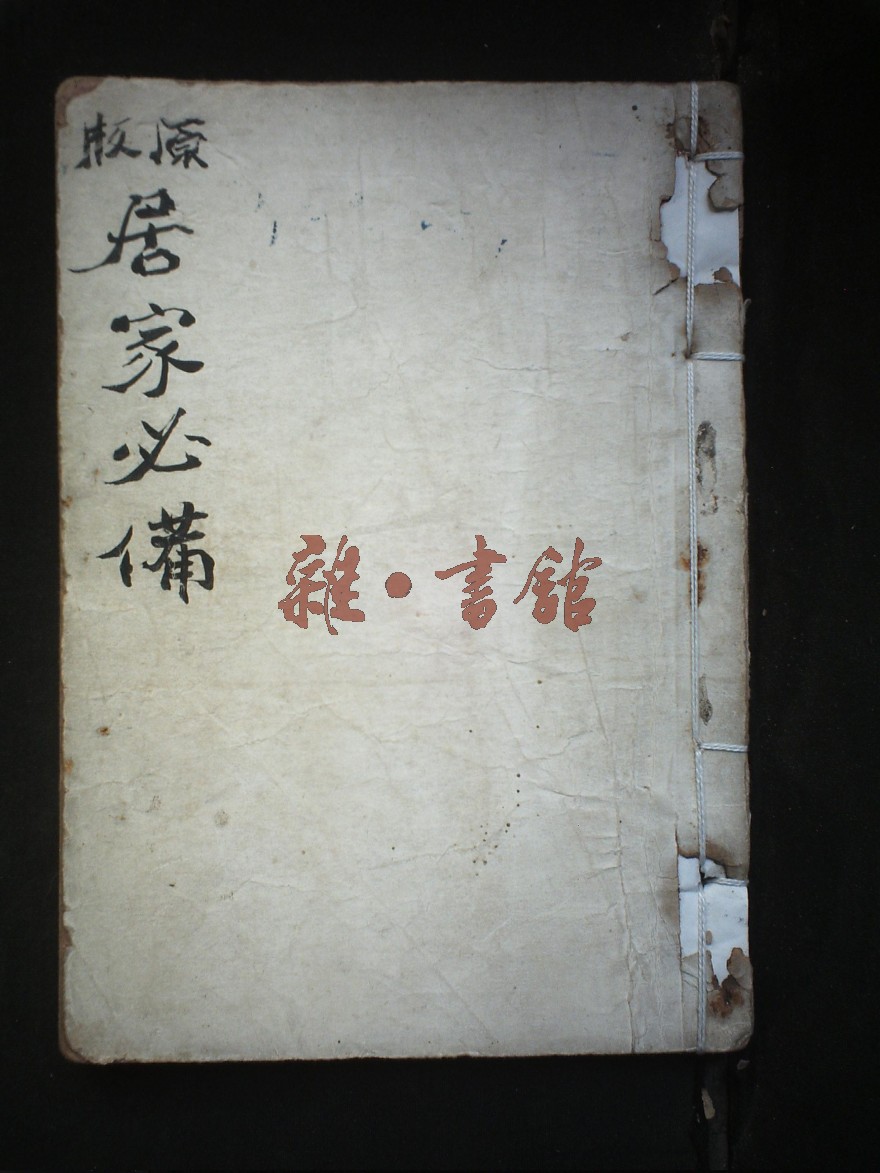 原版
居家必備
雜·書館